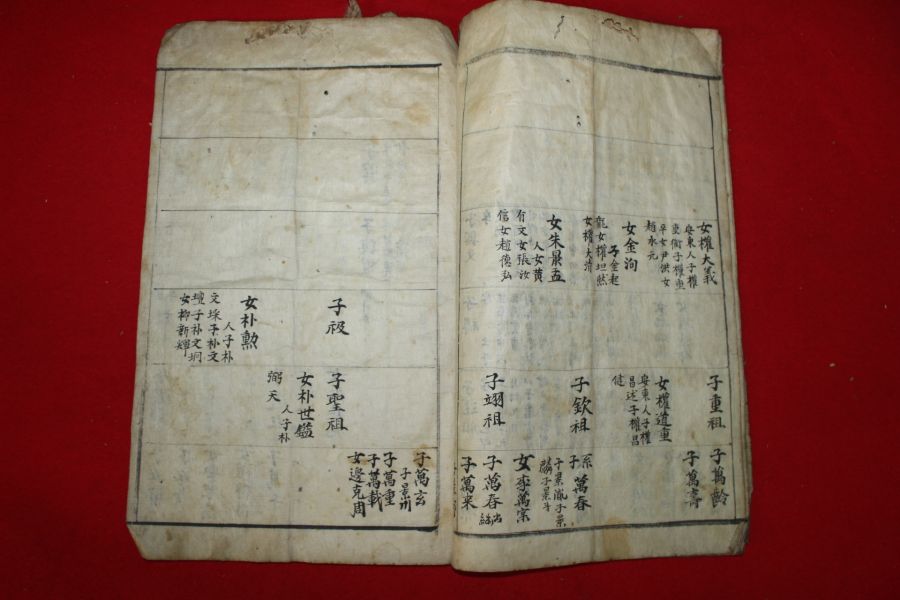 女權大義
安東人子權
衡子權重
女尹洪女
趙永元
女金洵
子金起
龍女權坦然
女權大淸
女朱景孟
人女黃
有文女張汝
信女趙德弘
子重祖
女權道重
安東人子權
昌述子權昌
健
子欽祖
子翊祖
子萬齡
子萬壽
系子萬春
子景胤子景
麟子景斗
女李萬宗
子萬春出系
子萬来
子祓
女朴勲
人子朴
文埰子朴文
壇子朴文垌
女柳新輝
子聖祖
女朴世鑑
人子朴
弼天
子萬玄
子景川
子萬重
子萬載
女邊克周